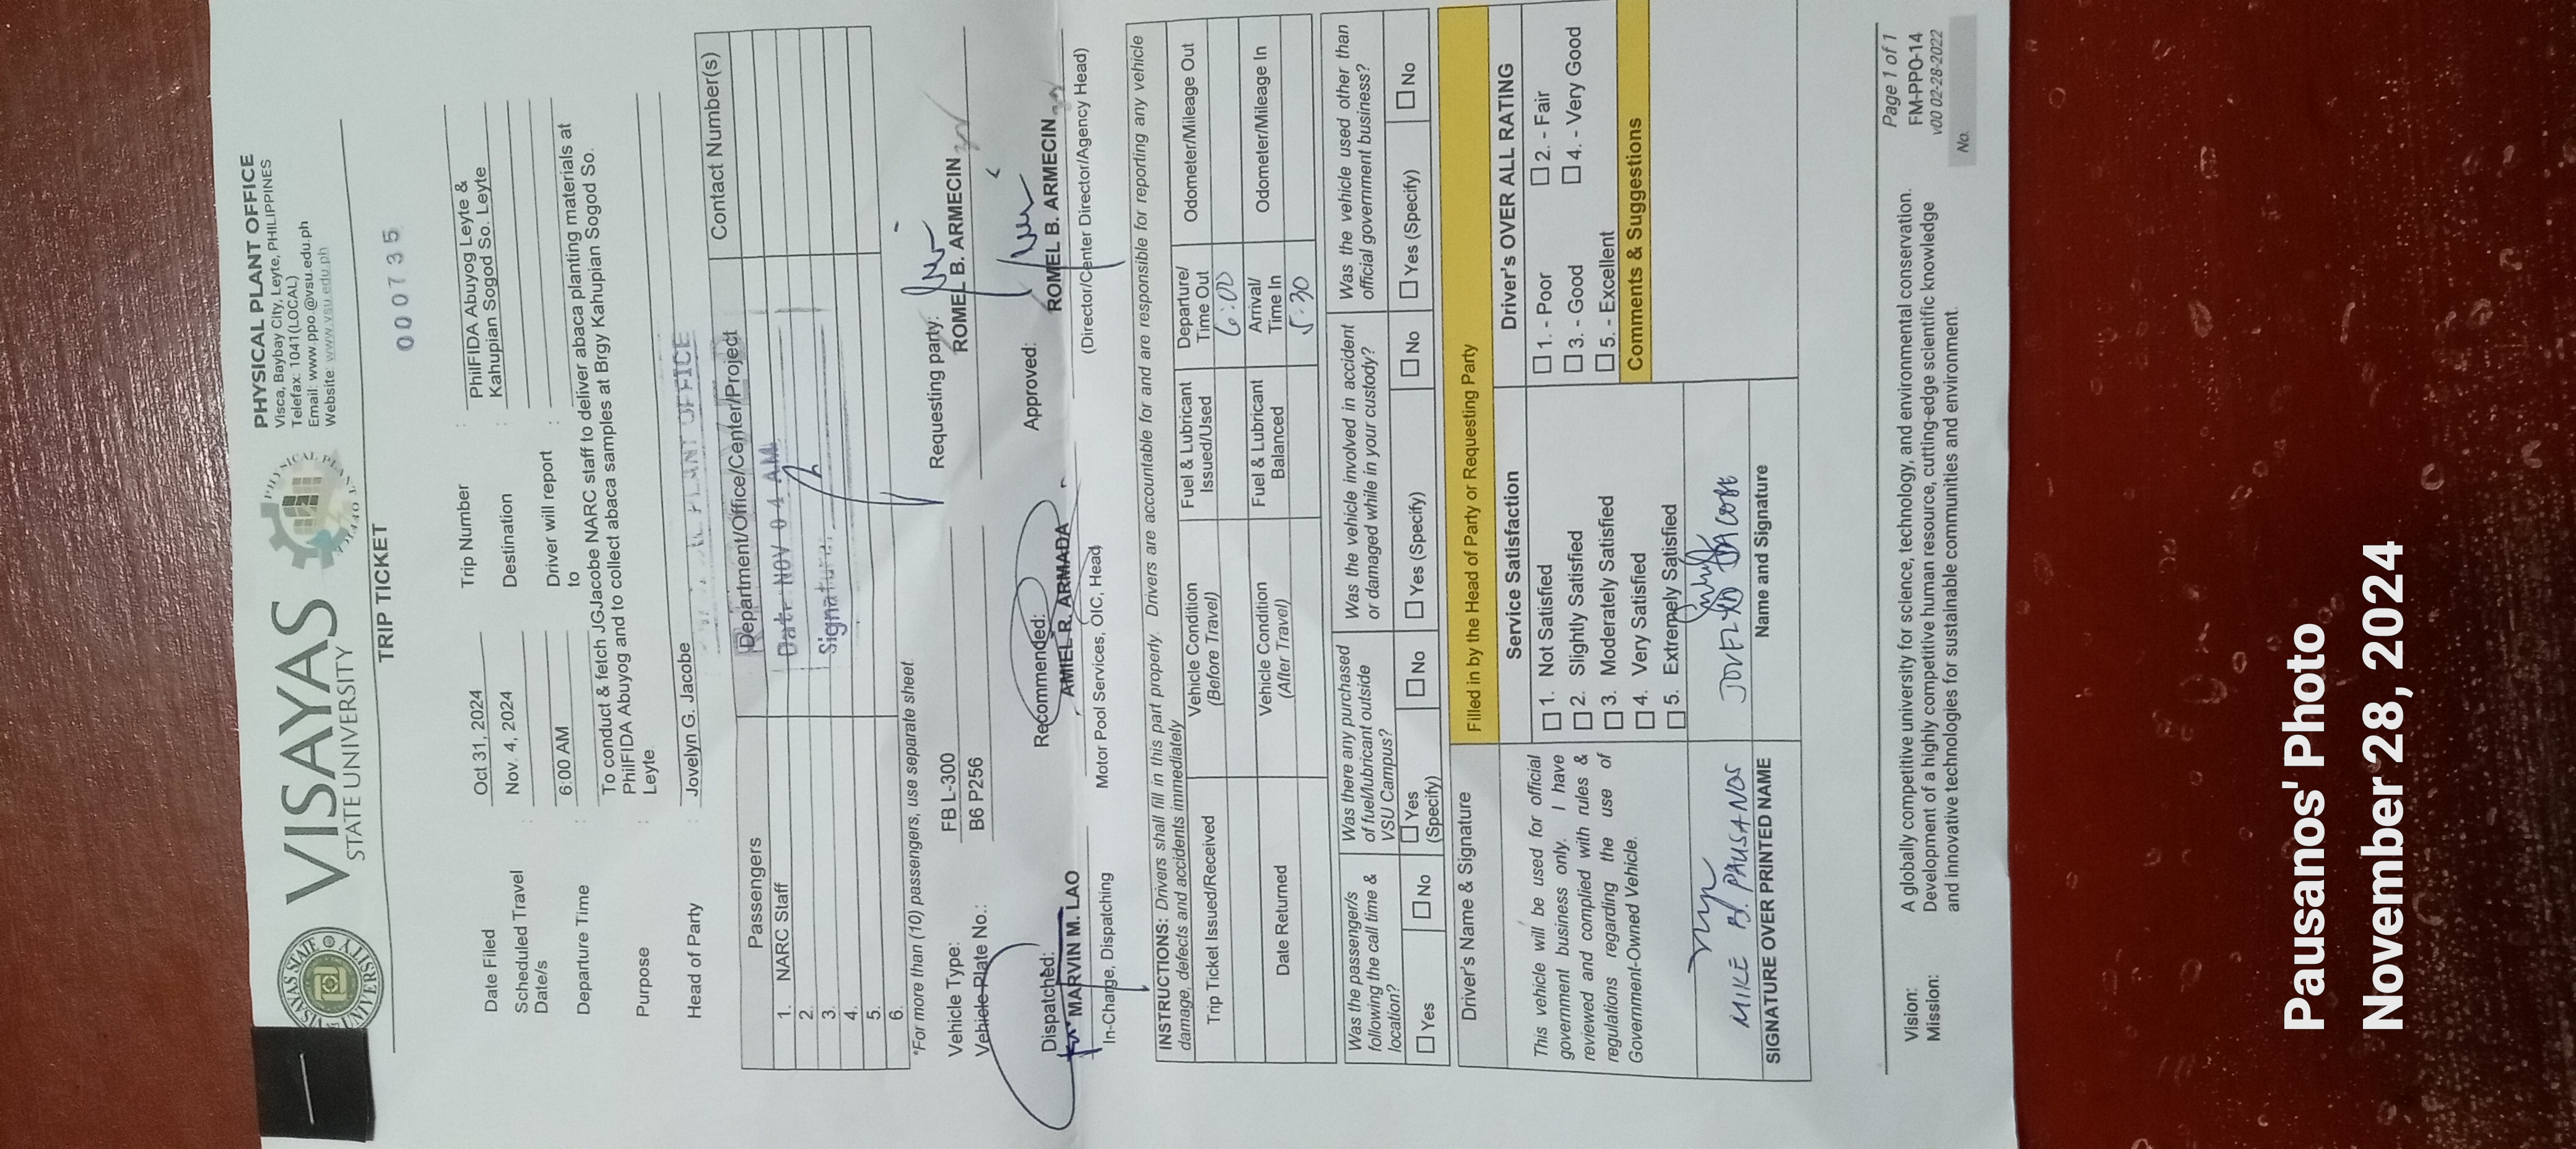 VISAYAS STATE UNIVERSITY
VISAYAS
STATE UNIVERSITY
PHYSICAL PLANT OFFICE
Visca, Baybay City, Leyte, PHILIPPINES
Telefax: 1041(LOCAL)
Email: www.ppo.@vsu.edu.ph
Website: www.vsu.edu.ph
TRIP TICKET
000735
Date Filed : Oct 31, 2024 Trip Number : PhilFIDA Abuyog Leyte &
Scheduled Travel Date/s : Nov. 4, 2024 Destination Kahupian Sogod So. Leyte
Departure Time : 6:00 AM Driver will report to :
Purpose : To conduct & fetch JGJacobe NARC staff to deliver abaca planting materials at
PhilFIDA Abuyog and to collect abaca samples at Brgy Kahupian Sogod So.
Leyte
Head of Party : Jovelyn G. Jacobe
PLANT OFFICE
Passengers Department/Office/Center/Project Contact Number(s)
1. NARC Staff
Date NOV 04 AM
2.
3.
Signature:
4.
5.
6.
*For more than (10) passengers, use separate sheet.
Vehicle Type: FB L-300 Requesting party:
Vehicle Plate No.: B6 P256 ROMEL B. ARMECIN
Dispatched: Recommended: Approved:
MARVIN M. LAO AMIEL R. ARMADA ROMEL B. ARMECIN
In-Charge, Dispatching Motor Pool Services, OIC, Head (Director/Center Director/Agency Head)
INSTRUCTIONS: Drivers shall fill in this part properly. Drivers are accountable for and are responsible for reporting any vehicle
damage, defects and accidents immediately
Trip Ticket Issued/Received Vehicle Condition (Before Travel) Fuel & Lubricant Issued/Used Departure/ Time Out Odometer/Mileage Out
6:00
Date Returned Vehicle Condition (After Travel) Fuel & Lubricant Balanced Arrival/ Time In Odometer/Mileage In
5:30
Was the passenger/s following the call time & location? Was there any purchased of fuel/lubricant outside VSU Campus? Was the vehicle involved in accident or damaged while in your custody? Was the vehicle used other than official government business?
☐ Yes ☐ No ☐ Yes (Specify) ☐ No ☐ Yes (Specify) ☐ No ☐ Yes (Specify) ☐ No
Driver's Name & Signature Filled in by the Head of Party or Requesting Party
This vehicle will be used for official
government business only. I have
reviewed and complied with rules &
regulations regarding the use of
Government-Owned Vehicle.
Service Satisfaction
☐ 1. Not Satisfied
☐ 2. Slightly Satisfied
☐ 3. Moderately Satisfied
☐ 4. Very Satisfied
☐ 5. Extremely Satisfied
Driver's OVER ALL RATING
☐ 1. - Poor ☐ 2. - Fair
☐ 3. - Good ☐ 4. - Very Good
☐ 5. - Excellent
Comments & Suggestions
MIKE B. PAUSANOS
SIGNATURE OVER PRINTED NAME Name and Signature
Vision: A globally competitive university for science, technology, and environmental conservation.
Mission: Development of a highly competitive human resource, cutting-edge scientific knowledge
and innovative technologies for sustainable communities and environment.
Page 1 of 1
FM-PPO-14
v00 02-28-2022
No.
Pausanos' Photo
November 28, 2024